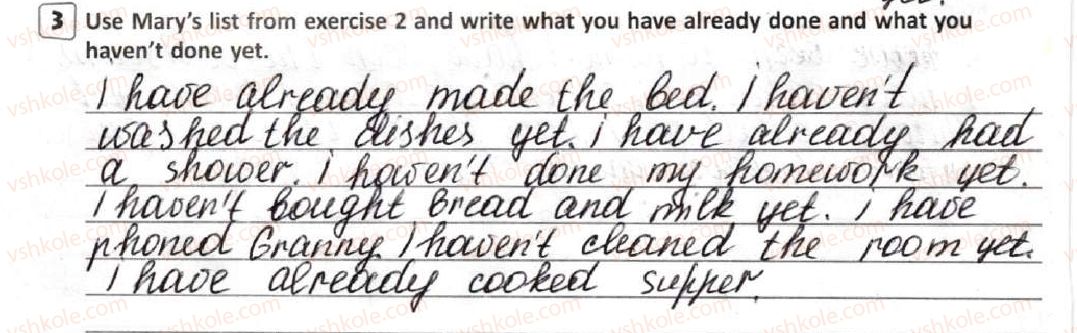 3 Use Mary's list from exercise 2 and write what you have already done and what you
haven't done yet.
I have already made the bed. I haven't
washed the dishes yet. I have already had
a shower. I haven't done my homework yet.
I haven't bought bread and milk yet. I have
phoned Granny. I haven't cleaned the room yet.
I have already cooked supper.